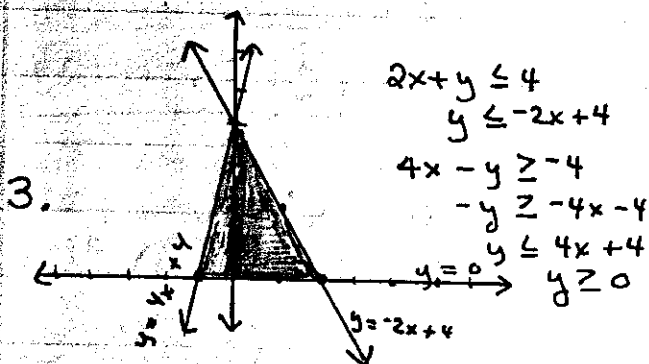 3.
2x + y ≤ 4
y ≤ -2x + 4
4x - y ≥ -4
-y ≥ -4x - 4
y ≤ 4x + 4
y ≥ 0
y = 0
y = -2x + 4